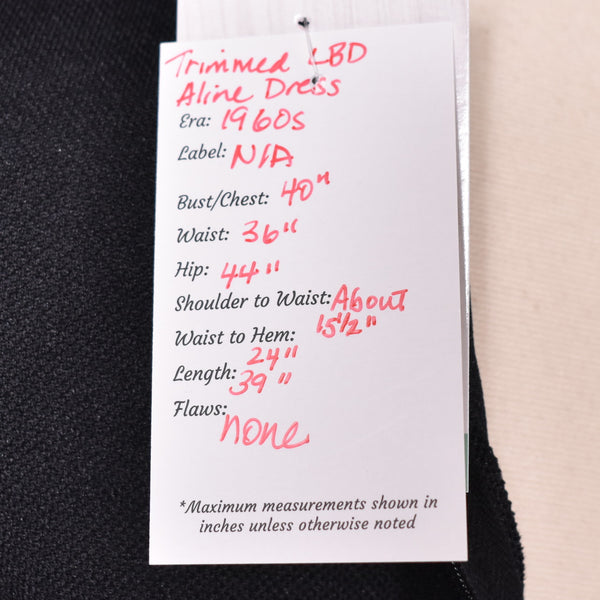 Trimmed LBD
Aline Dress
Era: 1960s
Label: N/A
Bust/Chest: 40"
Waist: 36"
Hip: 44"
Shoulder to Waist: About
15 1/2"
Waist to Hem:
24"
Length: 39"
Flaws:
none
*Maximum measurements shown in
inches unless otherwise noted